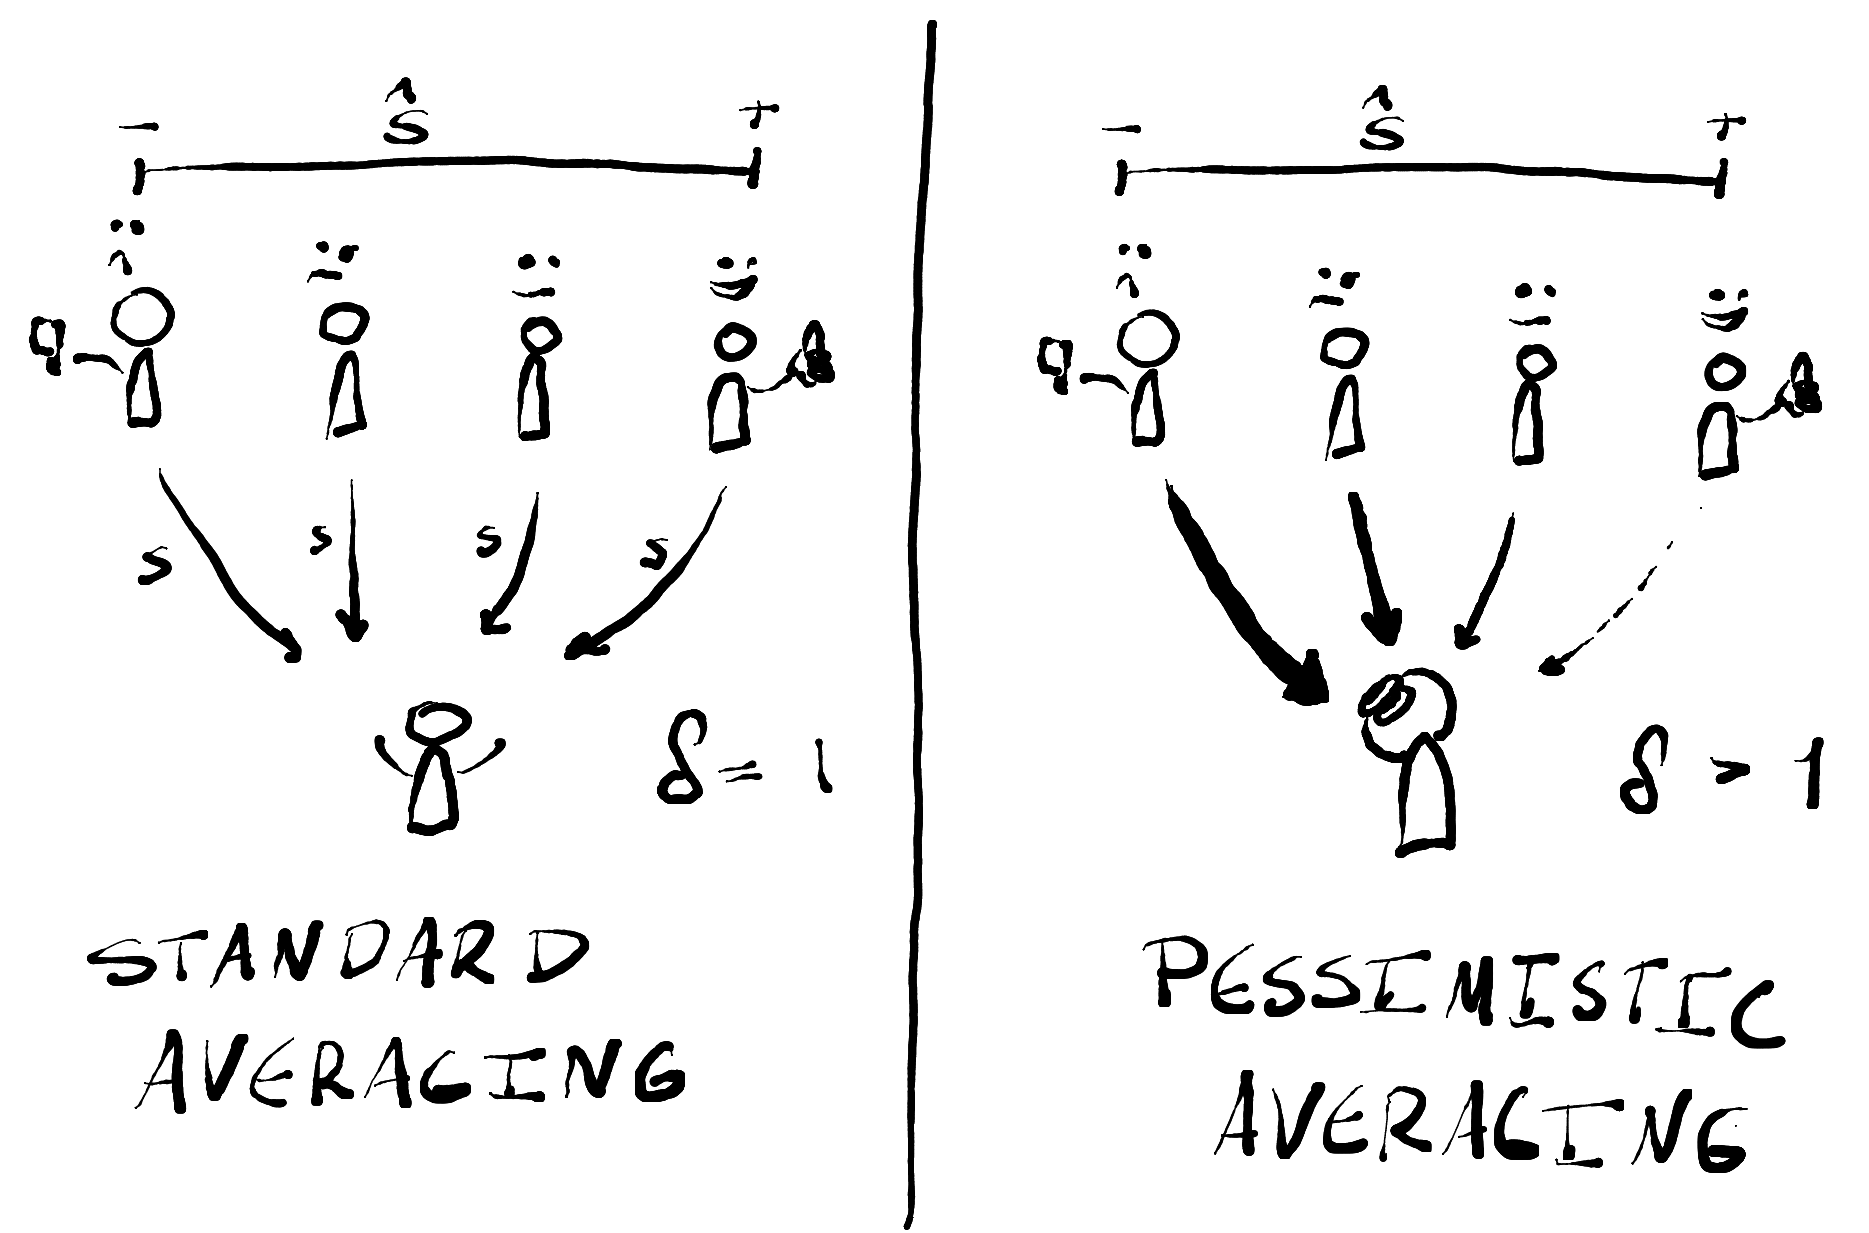 − ŝ +
s s s s
δ = 1
STANDARD
AVERAGING
− ŝ +
δ > 1
PESSIMISTIC
AVERAGING